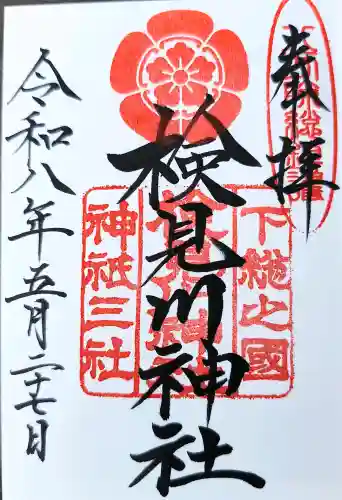 奉拝
検見川神社
下総之國
神祇三社
令和八年五月二十七日